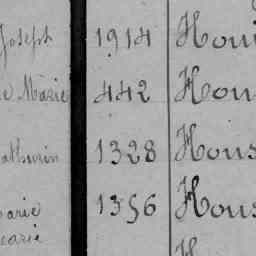 Joseph 1914 Hou
Marie 442 Hou
1328 Hous
Marie 1356 Hous